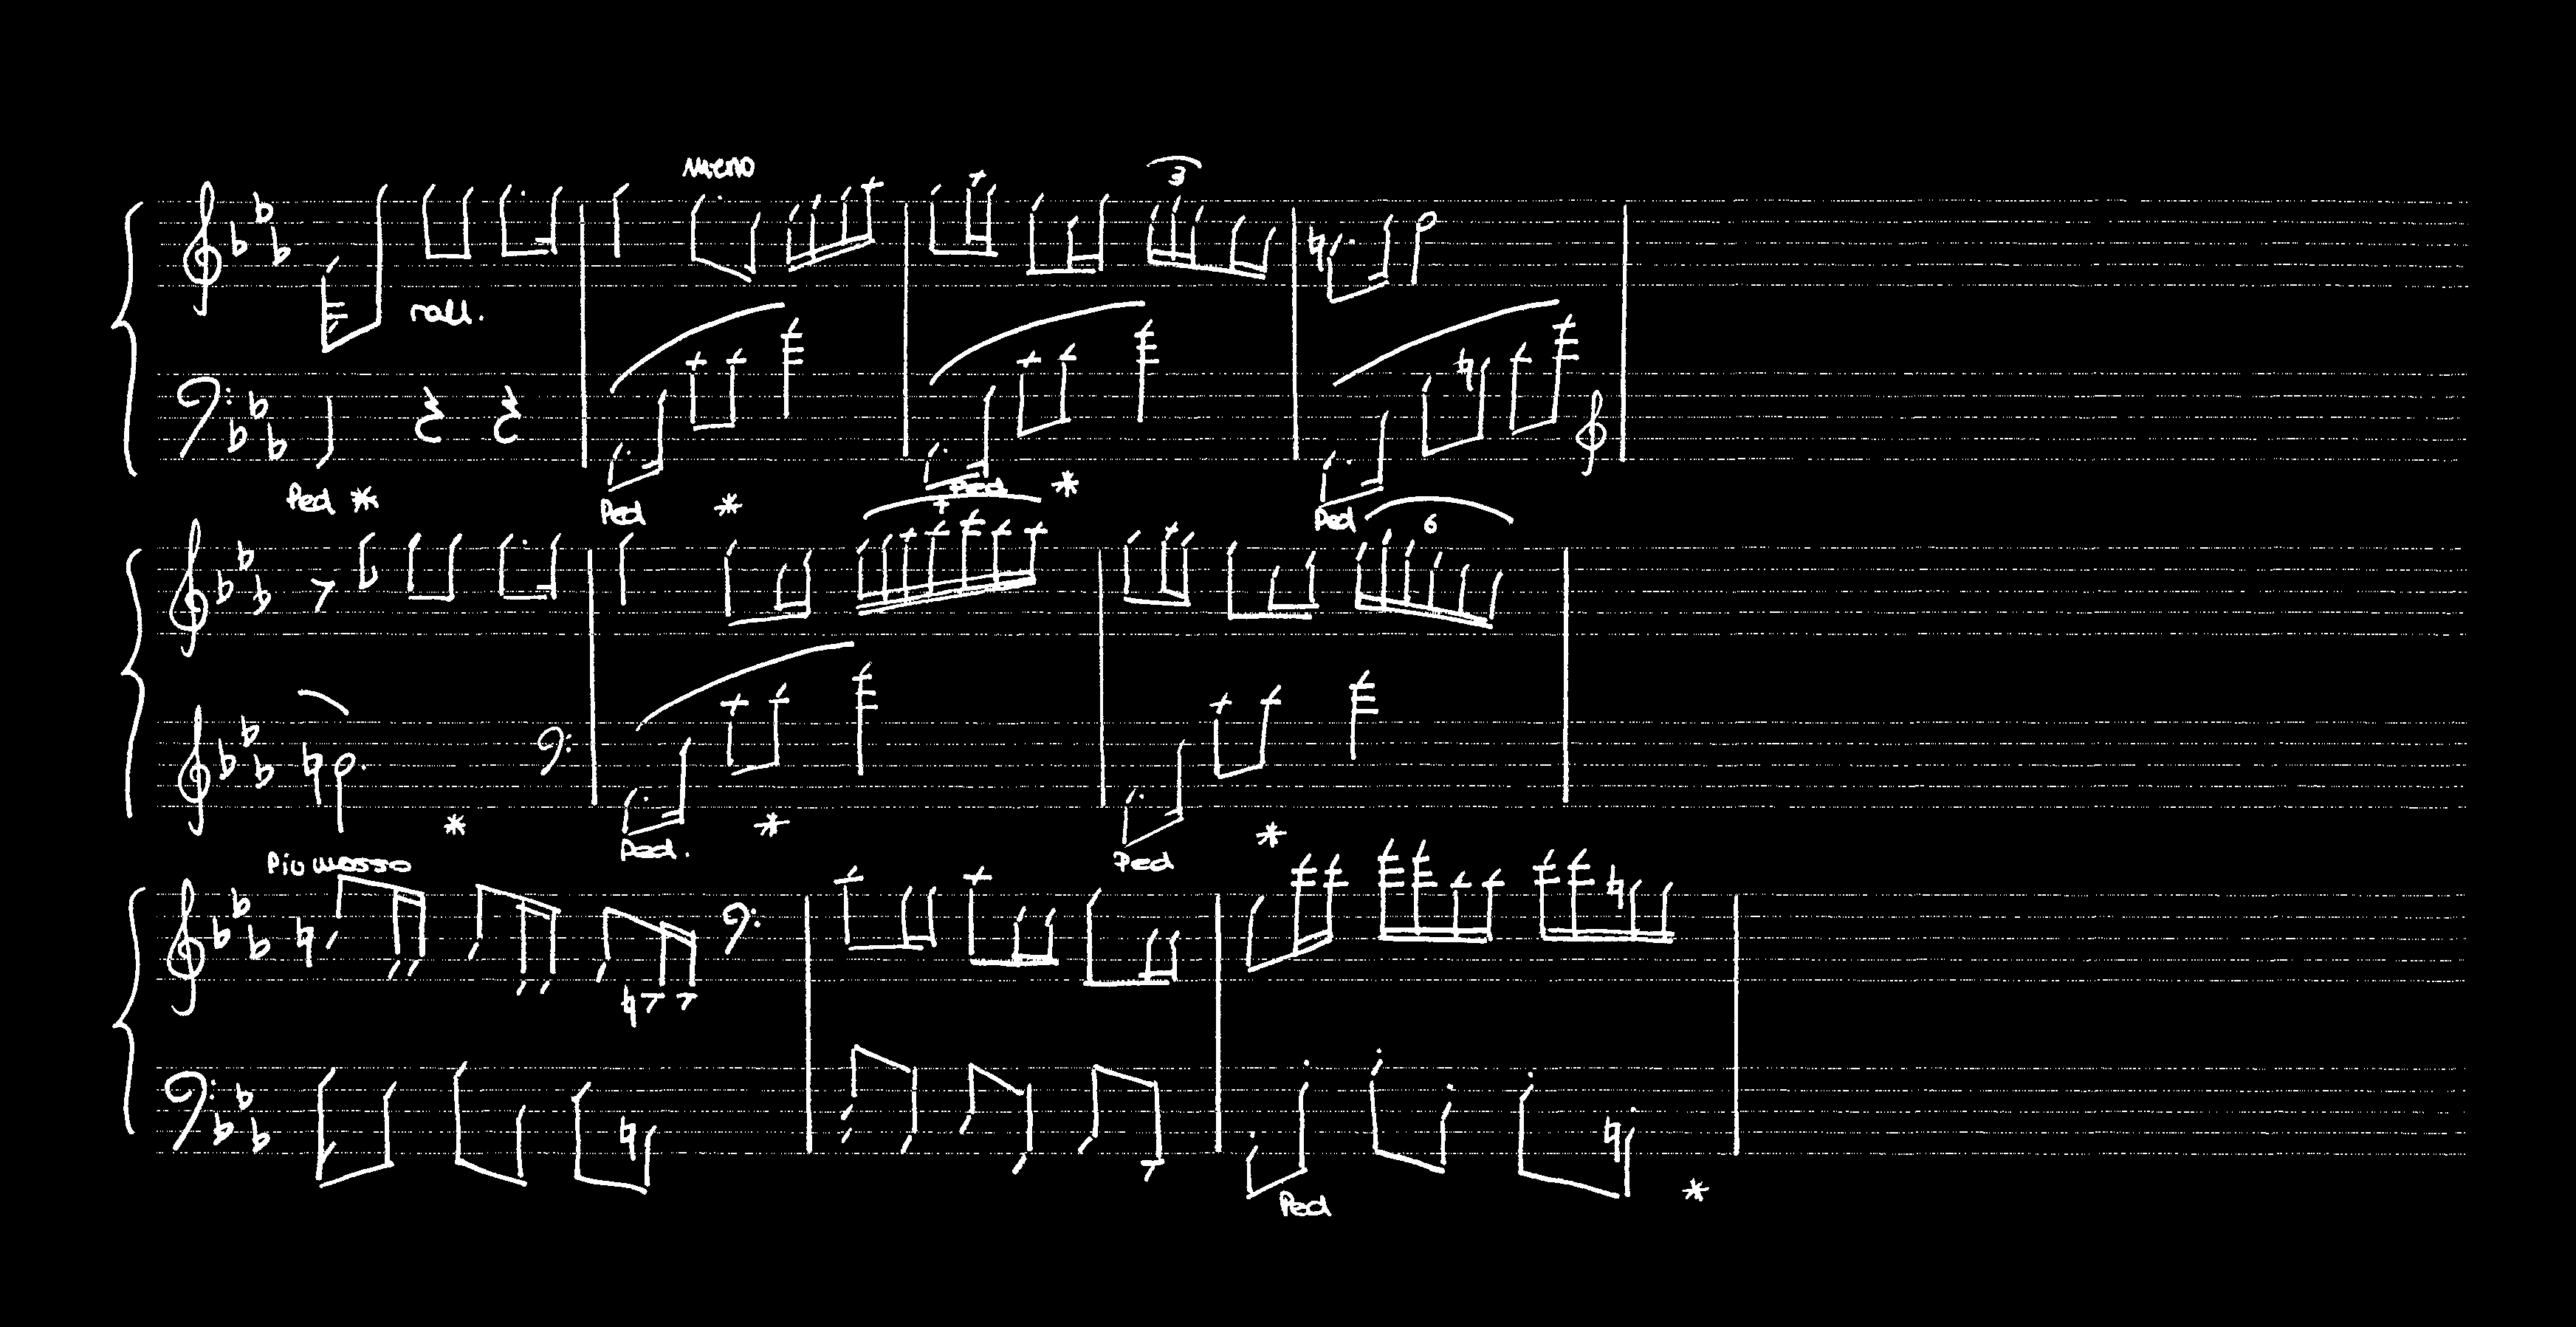 Meno
3
rall.
Ped *
Ped *
Ped *
Ped
7
6
*
Ped. *
Ped *
Piu mosso
Ped *